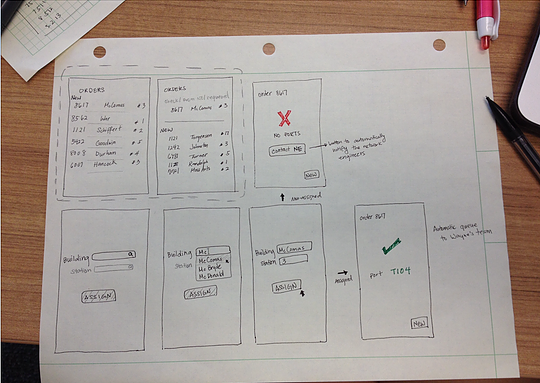 ORDERS
New
8617 McComas #3
8562 #1
1121 Schiffert #2
Goodwin #5
Durham #4
Hancock #3
ORDERS
8617 McComas #3
NEW
1121 Torgersen
1292 Johnston #3
Turner #5
Randolph #1
#2
order 8617
X
NO PORTS
Contact NE
button to automatically
notify the network
engineers
NEW
Non-assigned
Building
Station
ASSIGN
Building Mc
Station McComas
McBryde
McDonald
ASSIGN
Building McComas
Station 3
ASSIGN
Assigned
order 8617
Port T104
NEW
Automatic queue
to Wayne's team